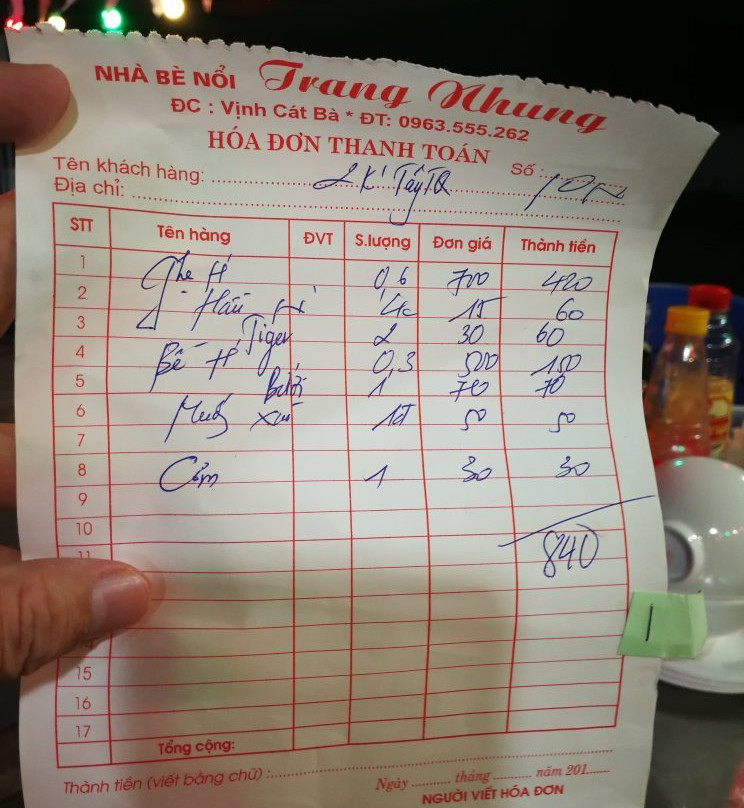 NHÀ BÈ NỔI Trang Nhung
ĐC : Vịnh Cát Bà * ĐT: 0963.555.262
HÓA ĐƠN THANH TOÁN
Số :
Tên khách hàng: 2 K' Tây
Địa chỉ:
STT Tên hàng ĐVT S.lượng Đơn giá Thành tiền
1 Ghẹ H 0,6 700 420
2 Hàu 4c 15 60
3 Tiger 2 30 60
4 Bề H 0,3 500 150
5 1 70 70
6 Muống xào 1đ 50 50
7
8 Cơm 1 30 30
9
10
840
11
15
16
17
Tổng cộng:
Thành tiền (viết bằng chữ) :
Ngày tháng năm 201
NGƯỜI VIẾT HÓA ĐƠN
1